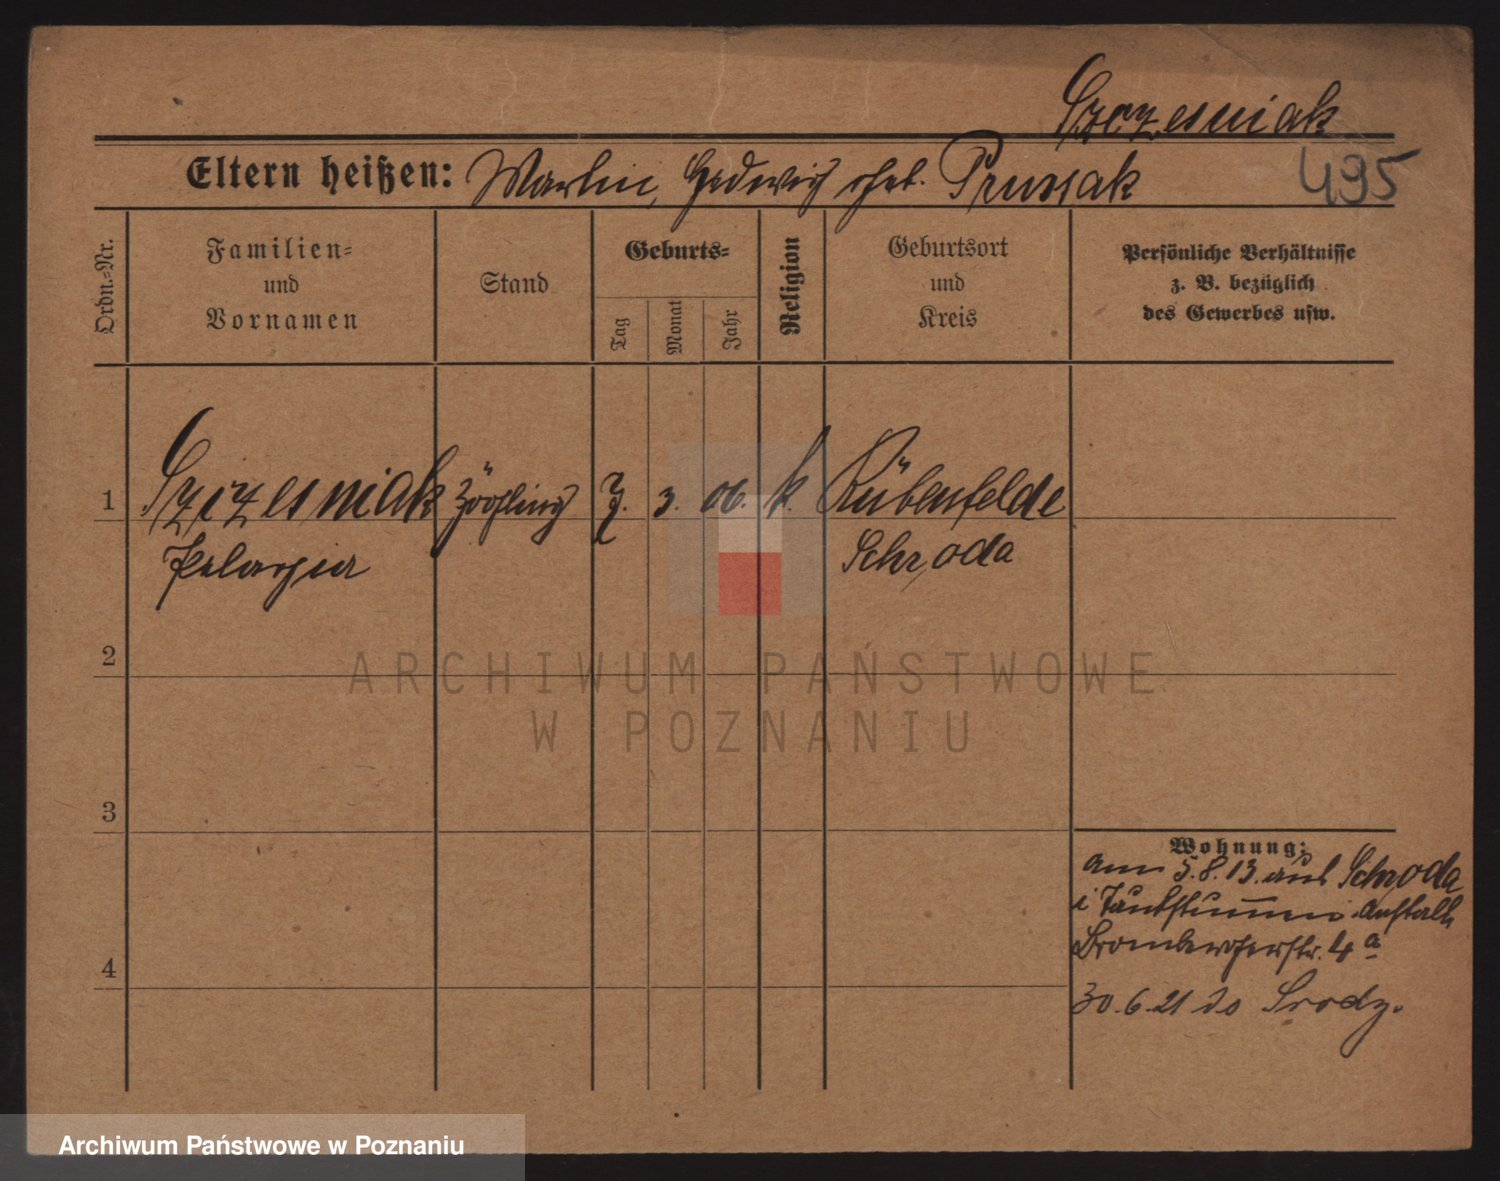 Szczesniak
Eltern heißen: Martin, Hedwig geb. Prussak
495
Ordn.-Nr.
Familien-
und
Vornamen
Stand
Geburts-
Tag
Monat
Jahr
Religion
Geburtsort
und
Kreis
Persönliche Verhältnisse
z. B. bezüglich
des Gewerbes usw.
1 Szczesniak Zögling 7. 3. 06. k. Rübenfelde
Pelagia Schroda
2
3
4
Wohnung:
am 5.8.13. aus Schroda
i Taubstummen Anstalt
Brombergerstr. 4a
30.6.21 do Srody.
ARCHIWUM PAŃSTWOWE
W POZNANIU
Archiwum Państwowe w Poznaniu